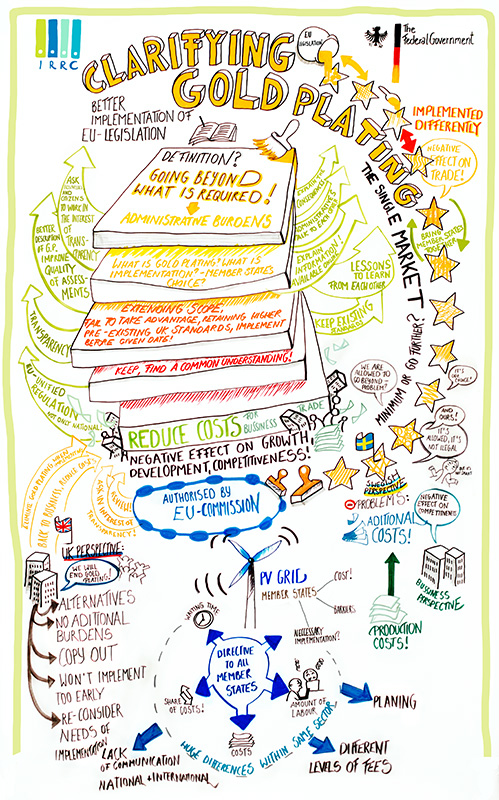 IRRC
CLARIFYING
GOLD PLATING
EU
LEGISLATION
The
Federal Government
BETTER
IMPLEMENTATION OF
EU-LEGISLATION
IMPLEMENTED
DIFFERENTLY
NEGATIVE
EFFECT ON
TRADE!
THE SINGLE MARKET
BRING
MEMBER STATES
TOGETHER
DEFINITION?
GOING BEYOND
WHAT IS REQUIRED!
→ADMINISTRATIVE BURDENS
WHAT IS GOLD PLATING? WHAT IS
IMPLEMENTATION - MEMBER STATES
CHOICE?
EXTENDING SCOPE,
FAIL TO TAKE ADVANTAGE, RETAINING HIGHER
PRE-EXISTING UK STANDARDS, IMPLEMENT
BEFORE GIVEN DATE!
KEEP, FIND A COMMON UNDERSTANDING!
ASK
AND CITIZENS
TO WORK IN THE INTEREST
OF
TRANS-
PARENCY
BETTER
DESCRIPTION
OF G.P.
IMPROVE
QUALITY
OF ASSESS-
MENTS
TRANSPARENCY
EU-UNIFIED
REGULATION
NOT ONLY NATIONAL
EXPLAIN
INFORMATION!
AVAILABLE ONLINE
LESSONS
TO LEARN
FROM EACH OTHER
KEEP EXISTING
MINIMUM OR GO FURTHER?
WE ARE
ALLOWED TO
GO BEYOND -
PROBLEM?
IT'S
OUR
CHOICE!
AND
OURS!
IT'S
ALLOWED, IT'S
NOT ILLEGAL
REDUCE COSTS -FOR
BUSINESS
TRADE
NEGATIVE EFFECT ON GROWTH
DEVELOPMENT, COMPETITIVENESS!
AUTHORISED BY
EU-COMMISSION
SWEDISH
PERSPECTIVE
PROBLEMS:
ADITIONAL
COSTS!
NEGATIVE
EFFECT ON
COMPETITIVENESS
BUSINESS
PERSPECTIVE
PRODUCTION
COSTS!
BACK TO BUSINESS, REDUCE COST
TRANSPARENCY!
UK PERSPECTIVE:
WE WILL
END GOLD
PLATING!
ALTERNATIVES
NO ADITIONAL
BURDENS
COPY OUT
WON'T IMPLEMENT
TOO EARLY
RE-CONSIDER
NEEDS OF
IMPLEMENTATION
PV GRID
MEMBER STATES
COST!
BARRIERS
NECESSARY
IMPLEMENTATION?
WAITING TIME
DIRECTIVE
TO ALL
MEMBER
STATES
SHARE
OF COSTS!
AMOUNT OF
LABOUR
COSTS
HUGE DIFFERENCES WITHIN SAME SECTOR
PLANING
DIFFERENT
LEVELS OF FEES
LACK
OF COMMUNICATION
NATIONAL + INTERNATIONAL